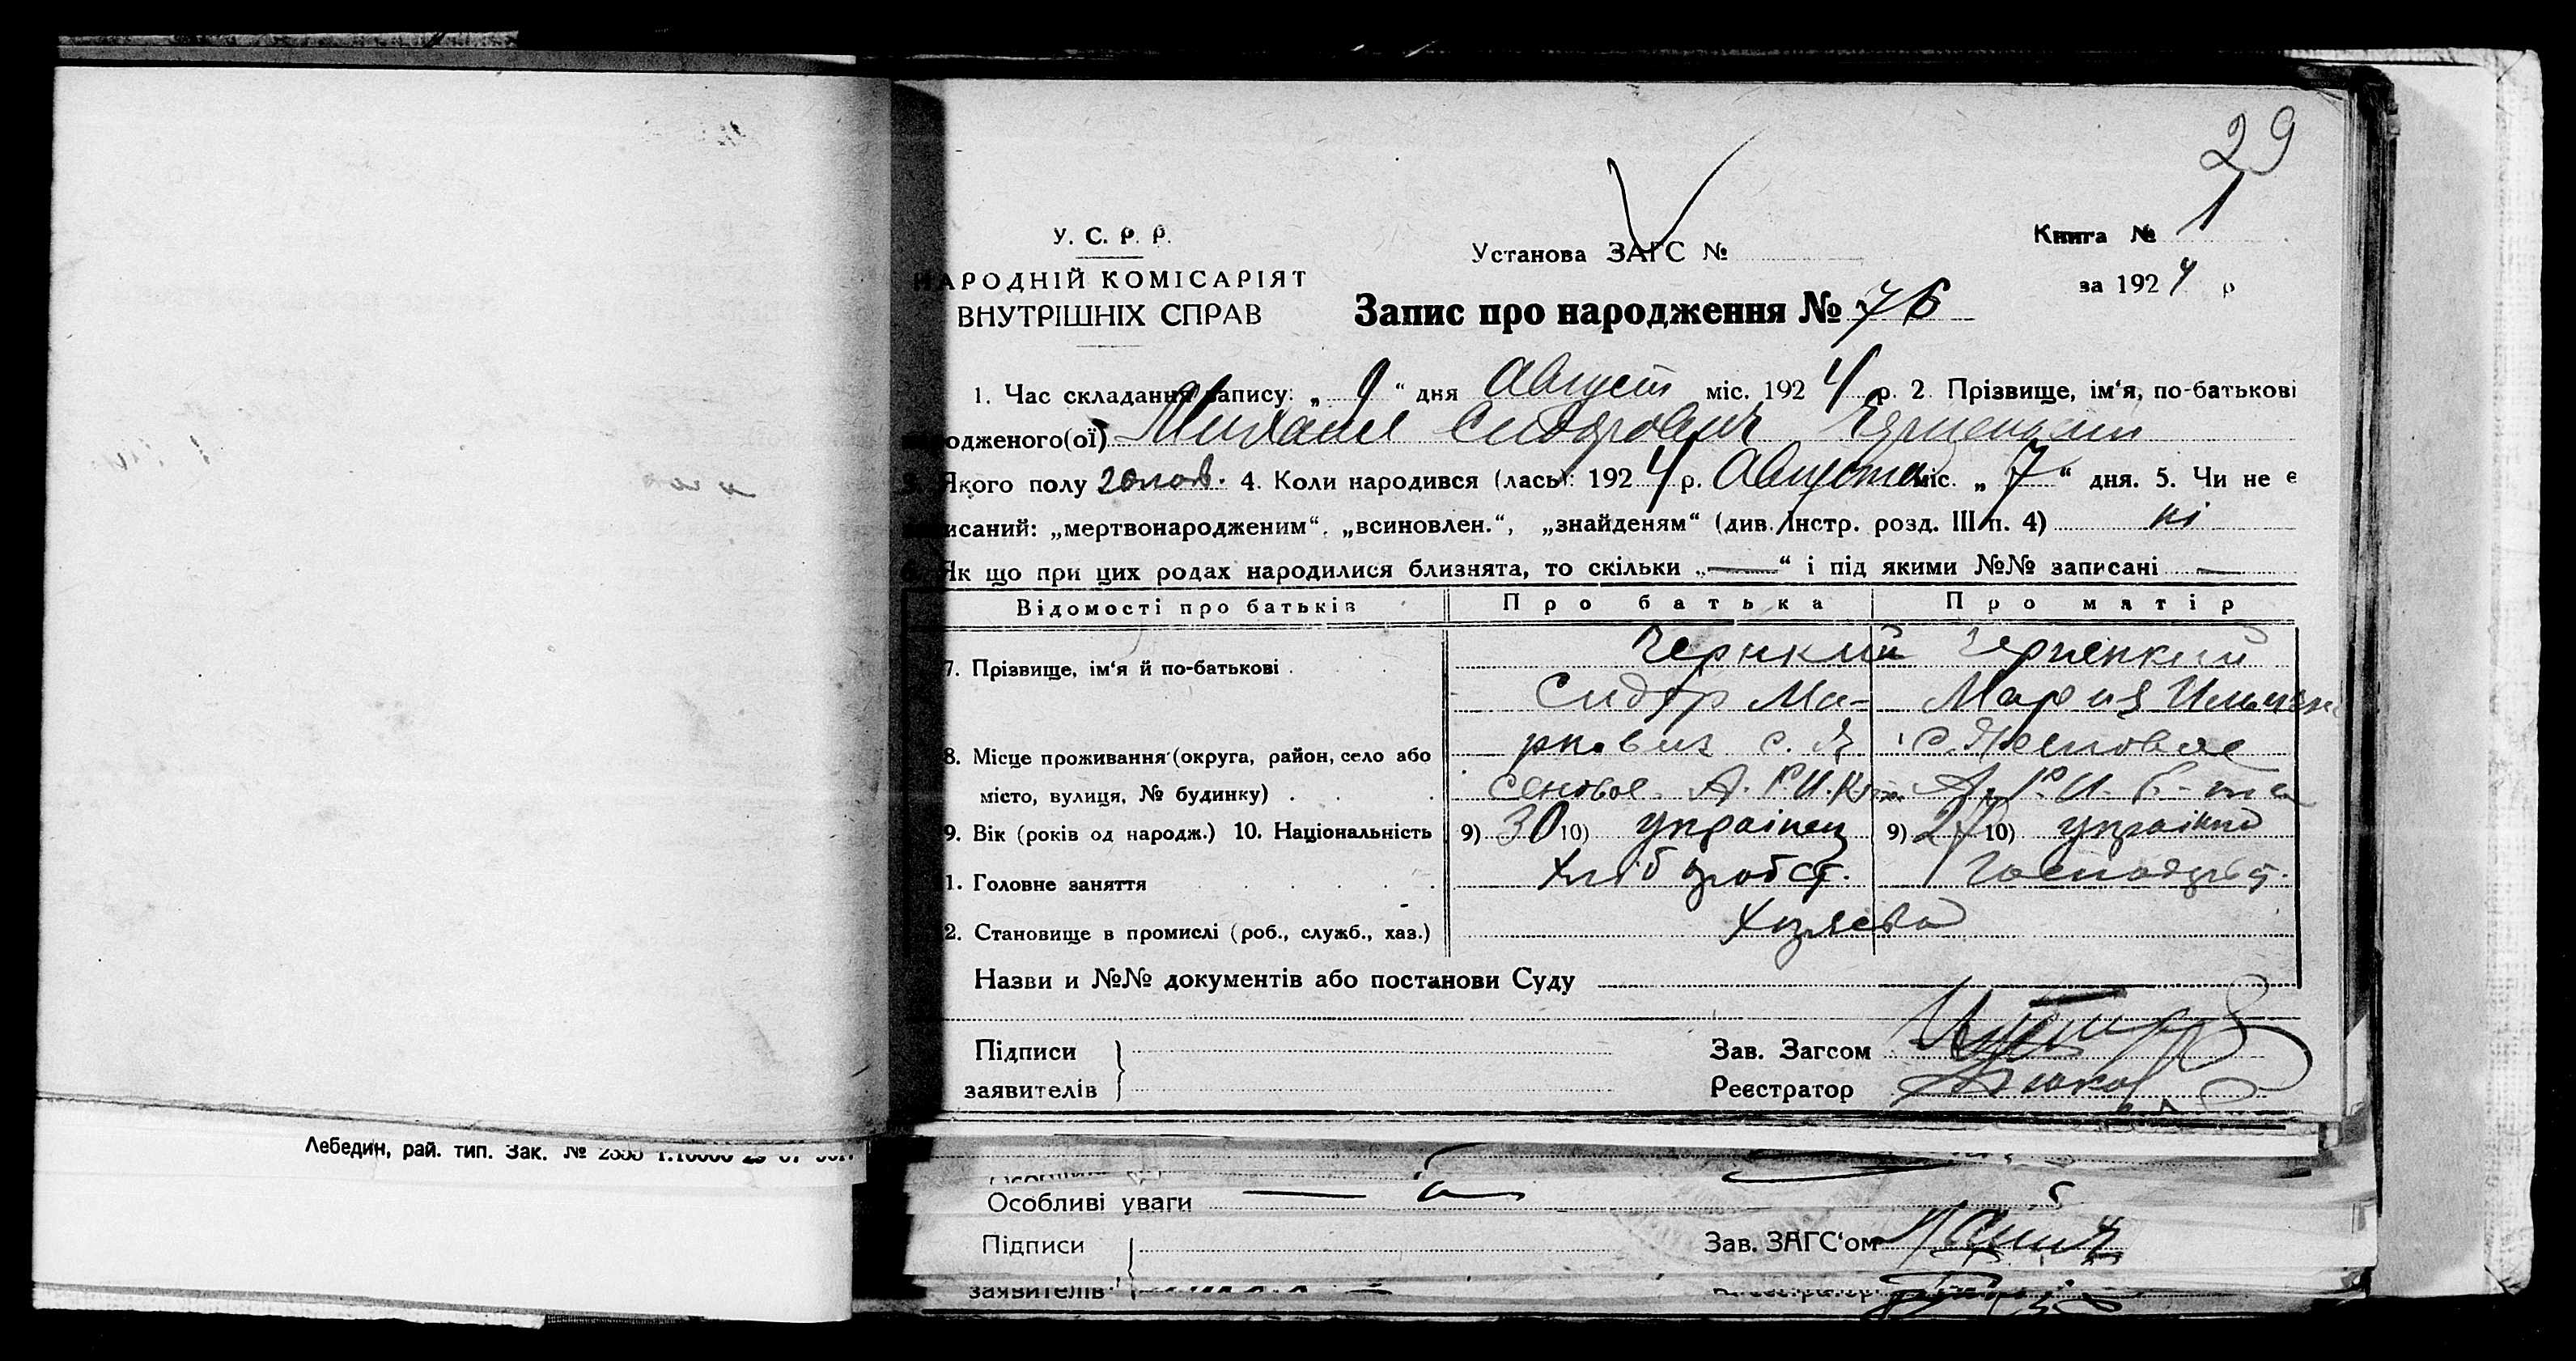 29
У. С. Р. Р.
НАРОДНІЙ КОМІСАРІЯТ
ВНУТРІШНІХ СПРАВ
Установа ЗАГС №
Книга № 1
за 1924 р
Запис про народження № 76
1. Час складання запису: „ 9 “ дня Август міс. 1924 р. 2 Прізвище, ім‘я, по-батькові
одженого(ої) Михаил Сидорович
Якого полу 4. Коли народився (лась): 1924 р. Августа міс. „ 7 “ дня. 5. Чи не є
исаний: „мертвонародженим“, „всиновлен.“, „знайденям“ (див. Інстр. розд. III п. 4) ні
Як що при цих родах народилися близнята, то скільки „—“ і під якими №№ записані —
Відомості про батьків Про батька Про матір
7. Прізвище, ім‘я й по-батькові
Сидор Ма- Мария
ркович с.
8. Місце проживання (округа, район, село або
місто, вулиця, № будинку) сеновое А. Р.И.К. А. Р. И. К-та
9. Вік (років од народж.) 10. Національність 9) 30 10) українец 9) 27 10) українка
1. Головне заняття хлібороб
2. Становище в промислі (роб., служб., хаз.) Хозяева
Назви и №№ документів або постанови Суду
Підписи
заявителів
Зав. Загсом
Реєстратор
Лебедин, рай. тип. Зак. №
Особливі уваги
Підписи
Зав. ЗАГС‘ом
заявителів